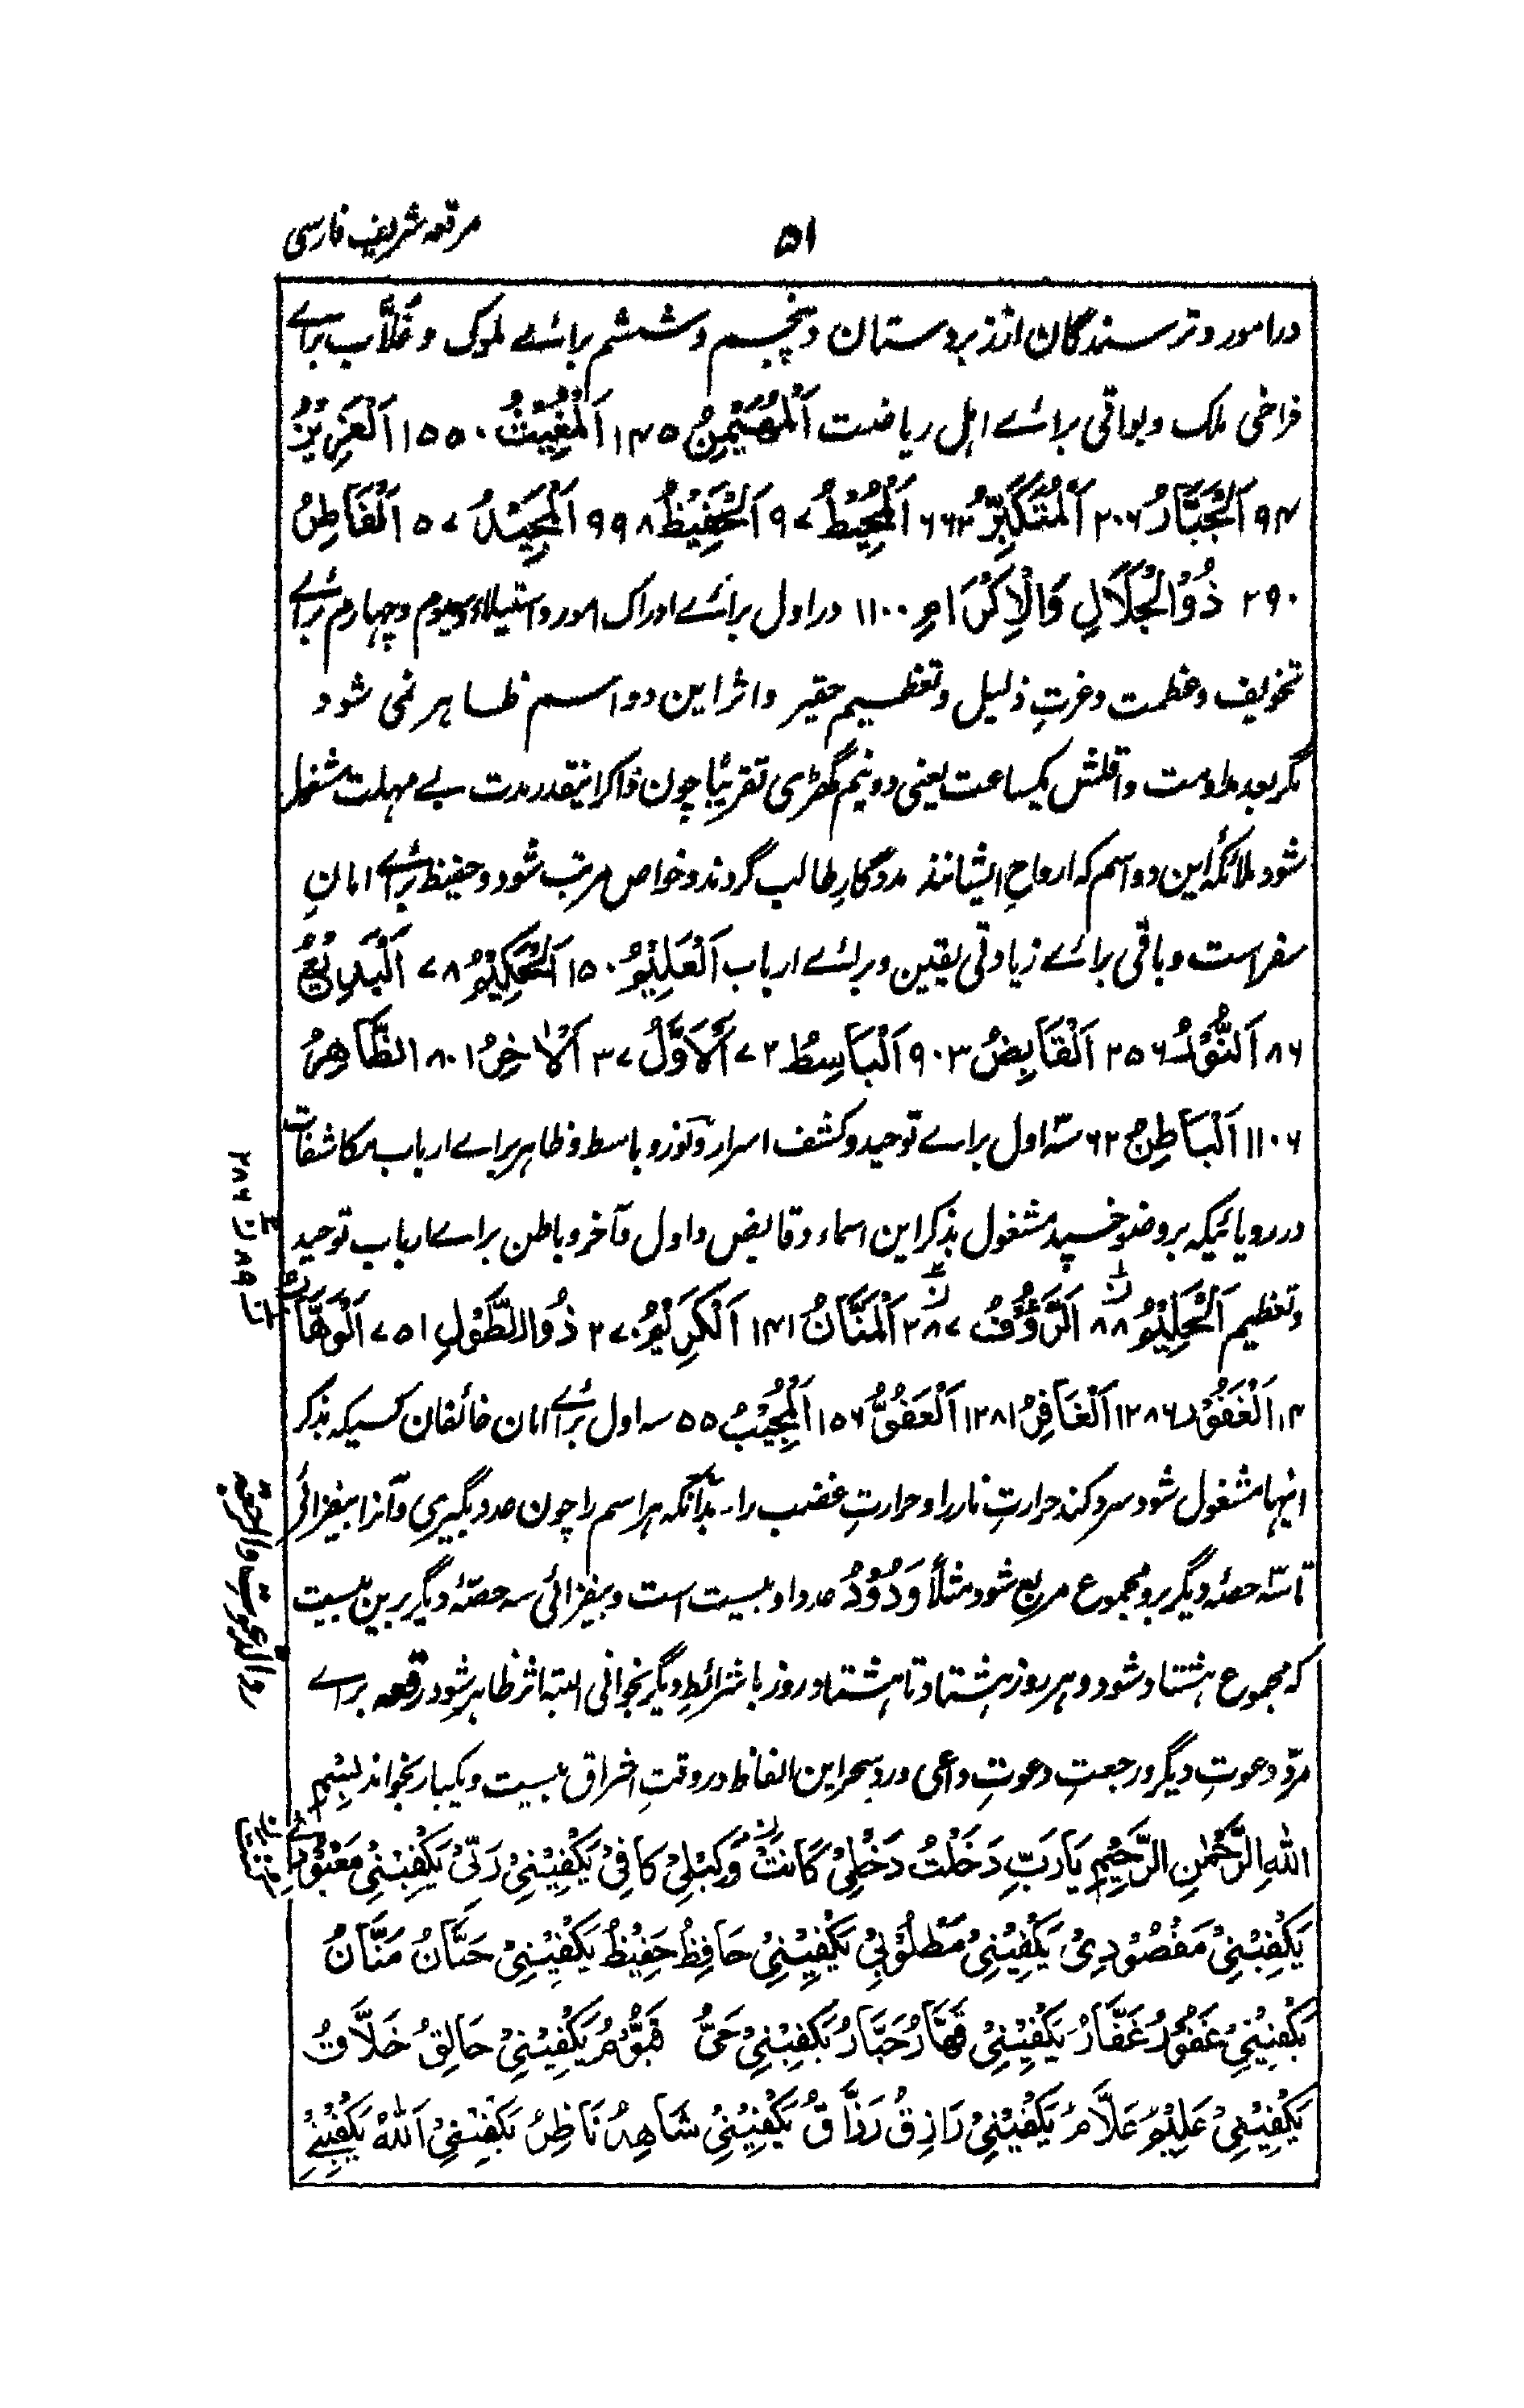 مرقعہ شریف فارسی
۵۱
در امور و ترسندگان از زبردستان و پنجم و ششم برائے ملوک و غلّاب برائے
فراخی ملک و بواقی برائے اہل ریاضت اَلْمُھَیْمِنُ ۱۴۵ اَلْمُغِیْثُ ۱۵۵۰ اَلْعَزِیْزُ
۹۴ اَلْجَبَّارُ ۲۰۶ اَلْمُتَکَبِّرُ ۶۶۲ اَلْمُحِیْطُ ۹۷ اَلْحَفِیْظُ ۹۹۸ اَلْمَجِیْدُ ۵۷ اَلْفَاطِرُ
۲۹۰ ذُوْالْجَلَالِ وَالْاِکْرَامِ ۱۱۰۰ در اول برائے ادراک امور و استیلاء و سیوم و چہارم برائے
تخویف و عظمت و عزتِ ذلیل و تعظیم حقیر و اثر این دو اسم ظاہر نمی شود
مگر بعد مداومت و اقلش یکساعت یعنی دو نیم گھڑی تقریباً چون ذاکر اینقدر مدت بے مہلت مشغول
شود ملائکۂ این دو اسم کہ ارواحِ ایشانند مددگارِ طالب گردند و خواص مرتب شود و حفیظ برائے امانِ
سفر است و باقی برائے زیادتی یقین و برائے ارباب اَلْعَلِیْمُ ۱۵۰ اَلْحَکِیْمُ ۷۸ اَلْبَدِیْعُ
۸۶ اَلنُّوْرُ ۲۵۶ اَلْقَابِضُ ۹۰۳ اَلْبَاسِطُ ۷۲ اَلْاَوَّلُ ۳۷ اَلْاٰخِرُ ۸۰۱ الظَّاھِرُ
۱۱۰۶ اَلْبَاطِنُ ۶۲ سہ اول برائے توحید و کشف اسرار و نور و باسط و ظاہر برائے ارباب مکاشفات
در رویا ئیکہ بر وضو خسپد مشغول بذکر این اسماء و قابض و اول و آخر و باطن برائے ارباب توحید
و تعظیم اَلْحَلِیْمُ ۸۸ اَلرَّؤُوْفُ ۲۸۷ اَلْمَنَّانُ ۱۴۱ اَلْکَرِیْمُ ۲۷۰ ذُوالطَّوْلِ ۷۵۱ اَلْوَھَّابُ
۱۴ اَلْغَفُوْرُ ۱۲۸۶ اَلْغَافِرُ ۱۲۸۱ اَلْعَفُوُّ ۱۵۶ اَلْمُجِیْبُ ۵۵ سہ اول برائے امان خائفان کسیکہ بذکر
اینہا مشغول شود سرد کند حرارتِ نار را و حرارتِ غضب را۔ بدآنکہ ہر اسم را چون عدد بگیری و آنرا بیفزائی
تا سہ حصہ دیگر برو مجموع مربع شود مثلاً وَدُوْدُ عدد او بیست است و بیفزائی سہ حصۂ دیگر برین بیست
کہ مجموع ہشتاد شود و ہر روز ہشتاد تا ہشتاد روز با شرائطِ دیگر بخوانی البتہ اثر ظاہر شود رقعہ برائے
ردِّ دعوتِ دیگر و رجعتِ دعوتِ داعی و رد سحر این الفاظ در وقتِ اشراق بیست و یکبار بخواند بِسْمِ
اللّٰہِ الرَّحْمٰنِ الرَّحِیْمِ یَا رَبِّ دَخَلْتُ دَخْلِیْ کَانَتْ وَکِیْلِیْ کَافِیْ یَکْفِیْنِیْ رَبِّیْ یَکْفِیْنِیْ مَعْبُوْدِیْ
یَکْفِیْنِیْ مَقْصُوْدِیْ یَکْفِیْنِیْ مَطْلُوْبِیْ یَکْفِیْنِیْ حَافِظُ حَفِیْظُ یَکْفِیْنِیْ حَنَّانُ مَنَّانُ
یَکْفِیْنِیْ غَفُوْرُ غَفَّارُ یَکْفِیْنِیْ قَھَّارُ جَبَّارُ یَکْفِیْنِیْ حَیُّ قَیُّوْمُ یَکْفِیْنِیْ خَالِقُ خَلَّاقُ
یَکْفِیْنِیْ عَلِیْمُ عَلَّامُ یَکْفِیْنِیْ رَازِقُ رَزَّاقُ یَکْفِیْنِیْ شَاھِدُ نَاظِرُ یَکْفِیْنِیْ اَللّٰہُ یَکْفِیْنِیْ